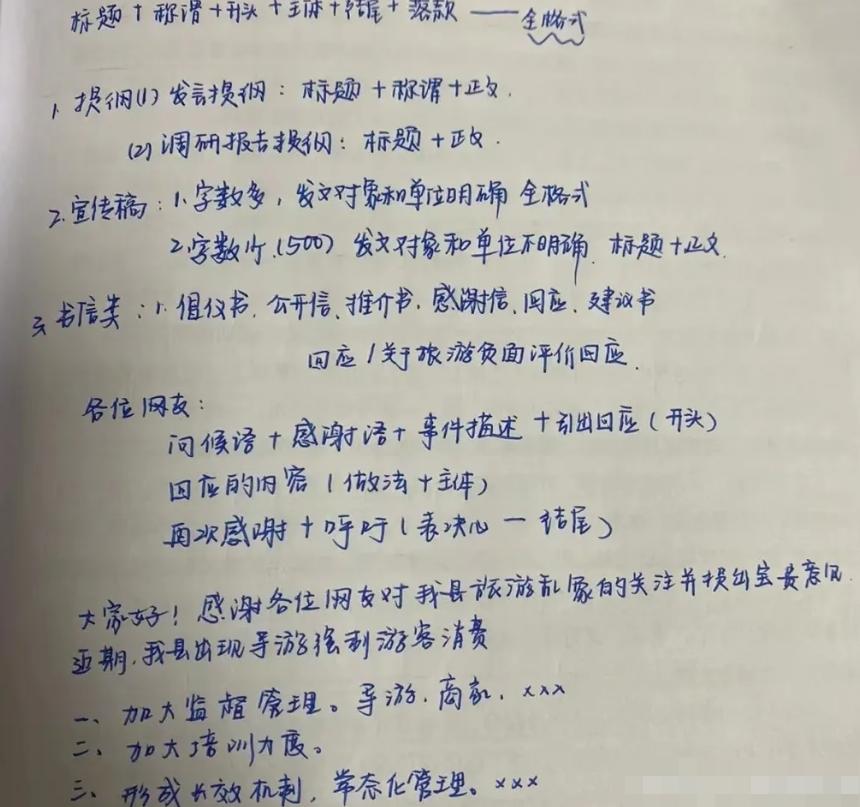 标题+称谓+开头+主体+结尾+落款 —— 全格式
1. 提纲(1) 发言提纲：标题+称谓+正文.
(2) 调研报告提纲：标题+正文.
2. 宣传稿：1. 字数多，发文对象和单位明确 全格式
2. 字数少.(500) 发文对象和单位不明确. 标题+正文.
3. 书信类：1. 倡仪书、公开信、推介书、感谢信、回应、建议书
回应/关于旅游负面评价回应.
各位网友：
问候语+感谢语+事件描述+引出回应(开头)
回应的内容(做法+主体)
再次感谢+呼吁(表决心—结尾)
大家好！感谢各位网友对我县旅游乱象的关注并提出宝贵意见.
近期，我县出现导游强制游客消费
一、加大监督管理。导游、商家、xxx
二、加大培训力度。
三、形成长效机制，常态化管理。xxx